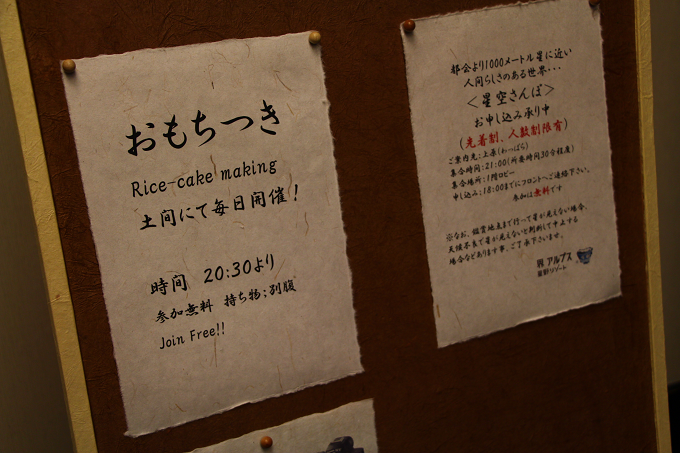 おもちつき
Rice-cake making
土間にて毎日開催！
時間 20:30より
参加無料 持ち物；別腹
Join Free!!
都会より1000メートル星に近い
人間らしさのある世界・・・
＜星空さんぽ＞
お申し込み承り中
(先着制、人数制限有)
ご案内先：上原(わっぱら)
集合時間：21:00(所要時間30分程度)
集合場所：1階ロビー
申し込み：18:00までにフロントへご連絡下さい。
参加は無料です
※なお、鑑賞地点まで行って星が見えない場合、
天候不良で星が見えないと判断して中止する
場合などあります事、ご了承下さいませ。
界 アルプス
星野リゾート